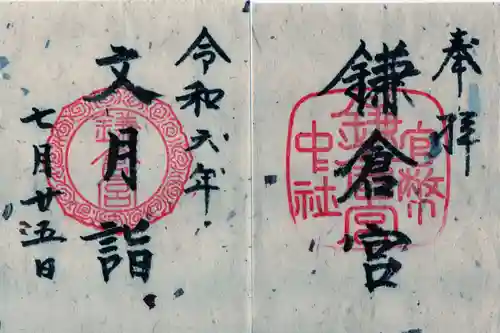 奉拝
鎌倉宮
官幣
中社
鎌倉宮
令和六年
文月詣
鎌倉宮
七月廿五日